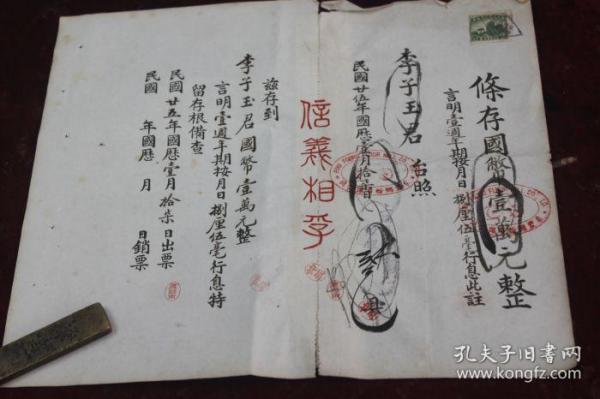 條存國幣壹萬元整
言明壹週年期按月日捌厘伍毫行息此註
李子玉君 台照
民國廿伍年國歷壹月拾
信義相孚
茲存到
李子玉君國幣壹萬元整
言明壹週年期按月日捌厘伍毫行息特
留存根備查
民國廿五年國歷壹月拾柒日出票
民國 年國歷 月 日銷票
孔夫子旧书网
www.kongfz.com